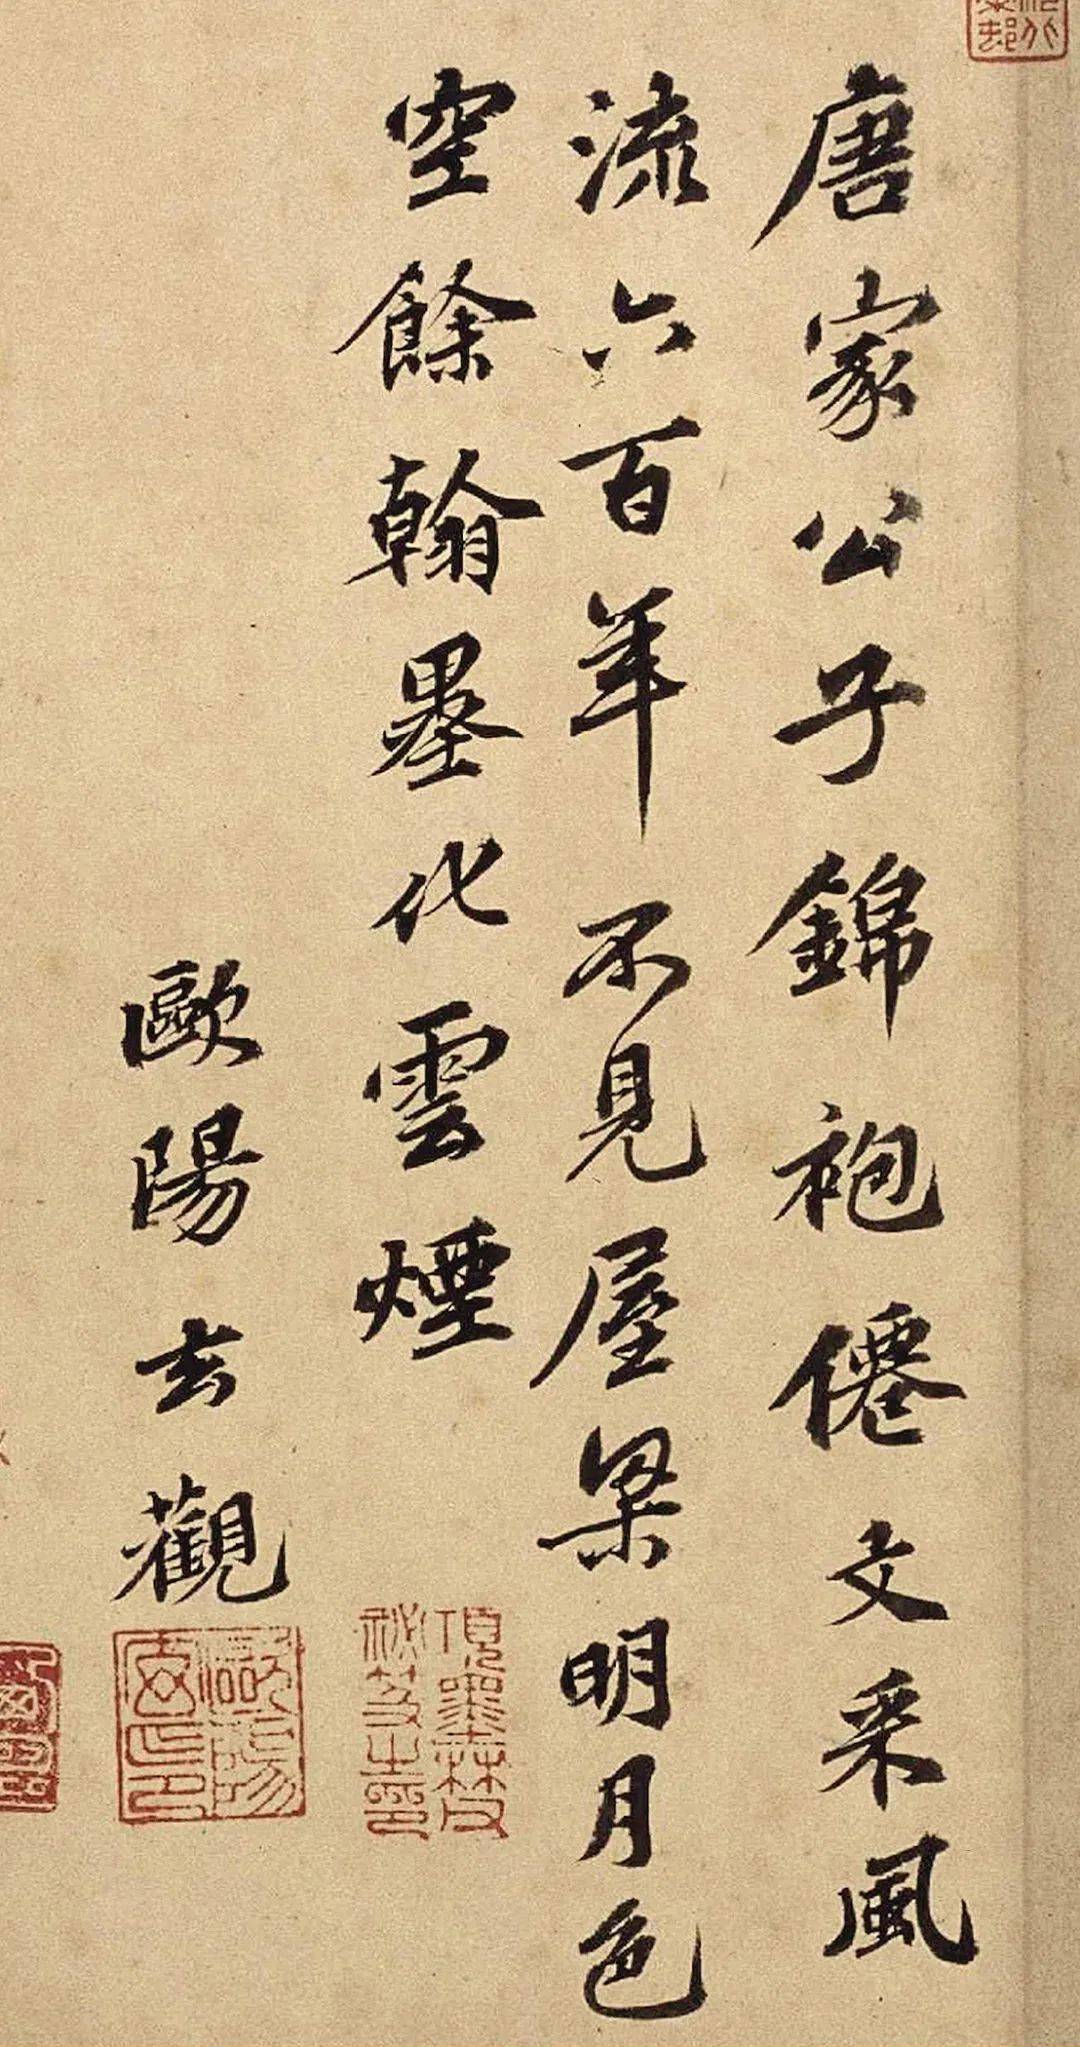 唐家公子錦袍僊文采風
流六百年不見屋梁明月色
空餘翰墨化雲煙
歐陽玄觀
項墨林父
祕笈之印
歐陽
玄印